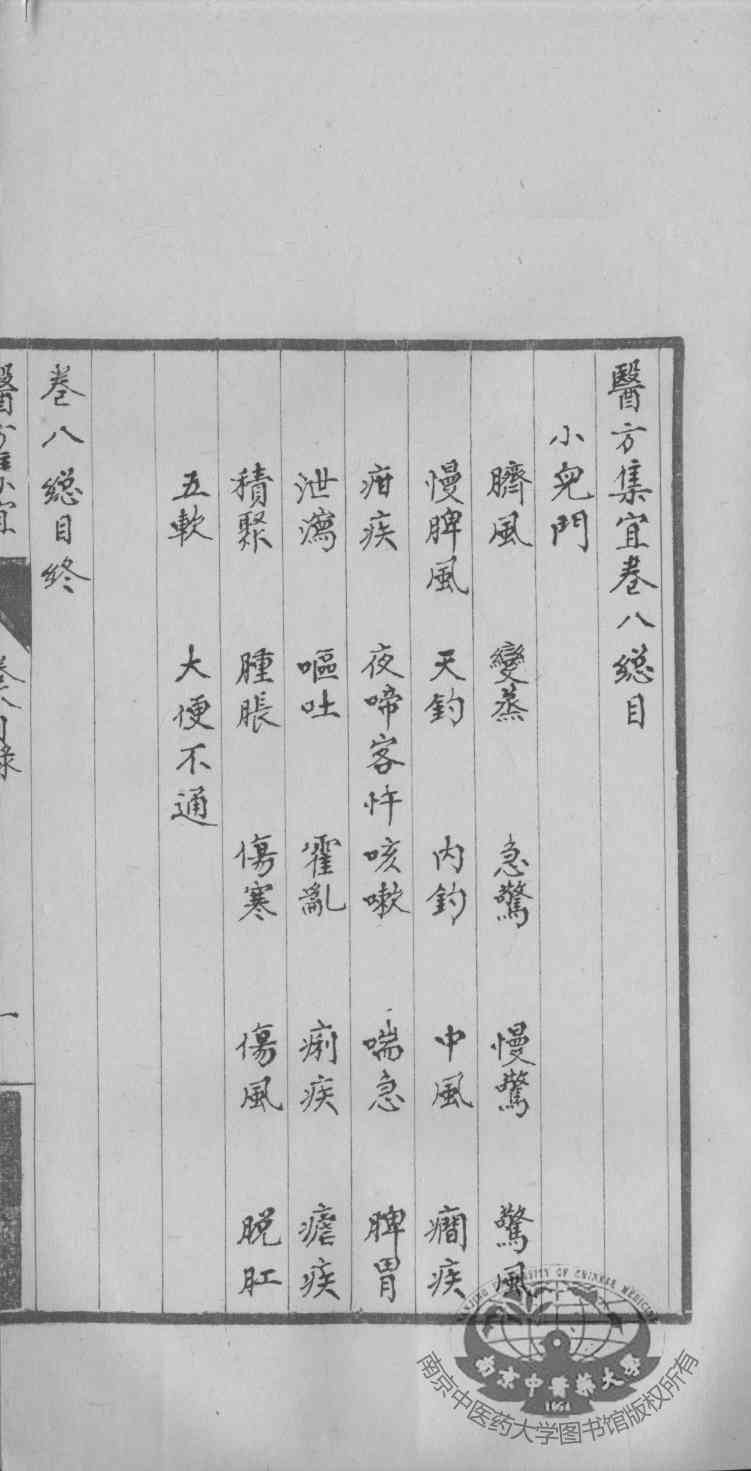 醫方集宜卷八總目
小兒門
臍風 變蒸 急驚 慢驚 驚風
慢脾風 天釣 內釣 中風 癇疾
疳疾 夜啼客忤 咳嗽 喘急 脾胃
泄瀉 嘔吐 霍亂 痢疾 瘧疾
積聚 腫脹 傷寒 傷風 脫肛
五軟 大便不通
卷八總目終
醫方集宜
卷八目錄
一
NANJING UNIVERSITY OF CHINESE MEDICINE
南京中醫藥大學
1954
南京中医药大学图书馆版权所有